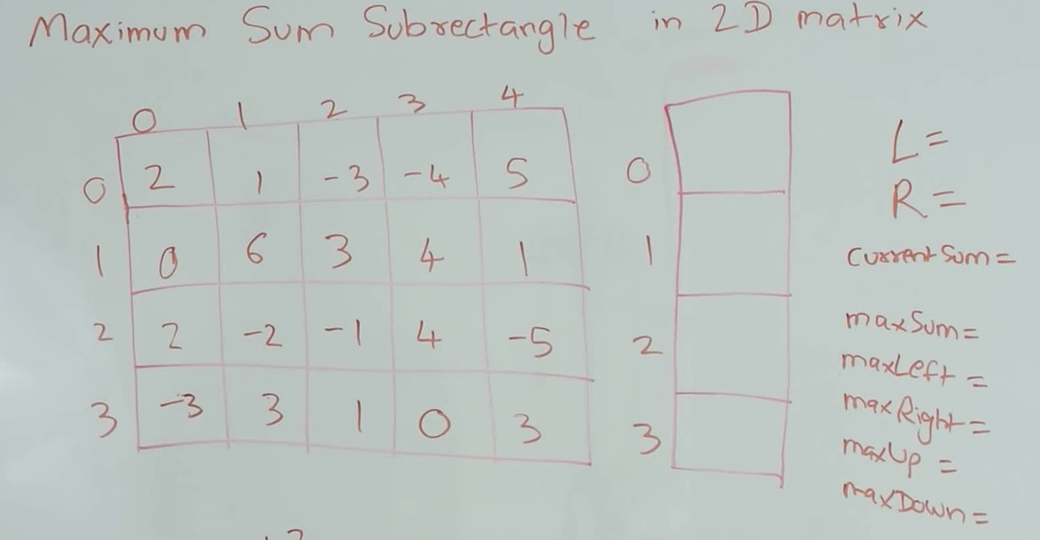 Maximum Sum Subrectangle in 2D matrix
0 1 2 3 4
0 2 1 -3 -4 5
1 0 6 3 4 1
2 2 -2 -1 4 -5
3 -3 3 1 0 3
0
1
2
3
L=
R=
currentSum=
maxSum=
maxLeft=
maxRight=
maxUp=
maxDown=